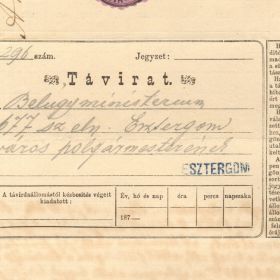 296 szám. Jegyzet:
Távirat.
Belügyministerium
677 sz eln. Esztergom
város polgármesterének
ESZTERGOM
A távirdaállomástól kézbesítés végett kiadatott:
Év, hó és nap óra percz napszaka
187